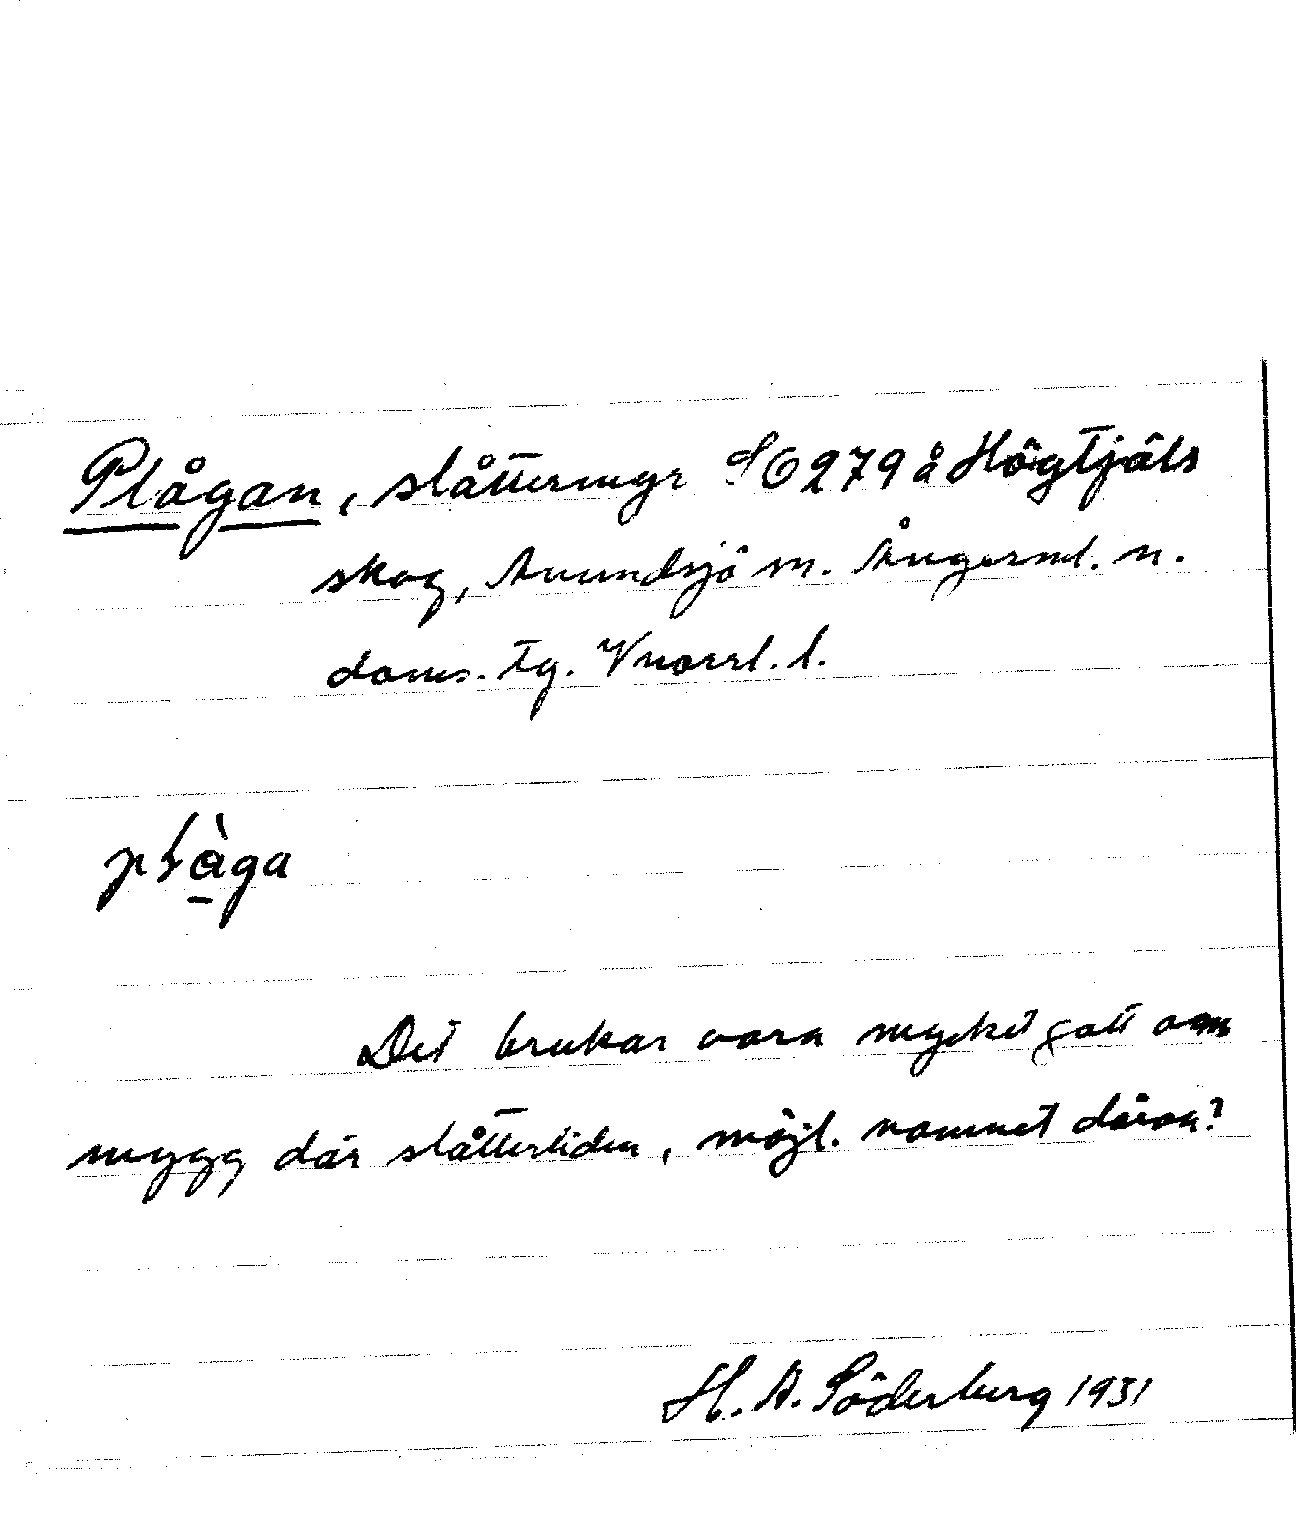 Plågan, slåttermyr SO 279 å Högtjäls
skog, Anundsjö sn. Ångerml. n.
doms. tg. Vnorrl. l.
plåga
Det brukar vara mycket gott om
mygg där slåttertiden, möjl. namnet därav?
H. A. Söderberg 1931